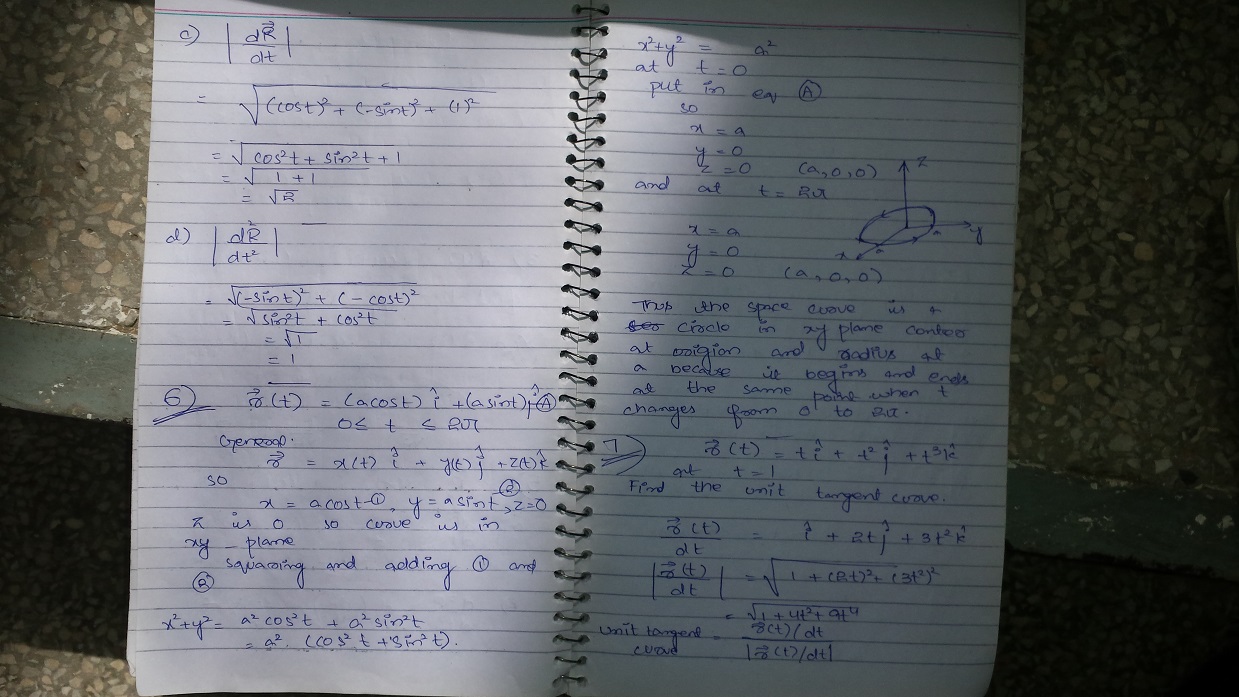 c) |dR⃗/dt|
= √((cost)² + (-sint)² + (1)²
= √(cos²t + sin²t + 1
= √(1 + 1
= √2
d) |d²R⃗/dt²|
= √((-sint)² + (-cost)²
= √(sin²t + cos²t
= √1
= 1
6) r⃗(t) = (acost) î + (asint) ĵ Ⓐ
0 ≤ t ≤ 2π
General.
r⃗ = x(t) î + y(t) ĵ + z(t) k̂
so
x = acost-①, y = asint ②, z=0
z is 0 so curve is in
xy-plane
squaring and adding ① and
②
x²+y² = a²cos²t + a²sin²t
= a². (cos²t + sin²t).
x²+y² = a²
at t=0
put in eq Ⓐ
so
x = a
y = 0
z = 0 (a,0,0)
and at t = 2π
z
y
a
x
a
x = a
y = 0
z = 0 (a,0,0)
Thus the space curve is a
circle in xy plane conter
at origion and radius at
a because it begins and ends
at the same point when t
changes from 0 to 2π.
7) r⃗(t) = tî + t² ĵ + t³k̂
at t=1
Find the unit tangent curve.
r⃗(t)/dt = î + 2tĵ + 3t²k̂
|r⃗(t)/dt| = √(1 + (2t)² + (3t²)²
= √(1 + 4t² + 9t⁴
unit tangent curve = r⃗(t)/dt / |r⃗(t)/dt|